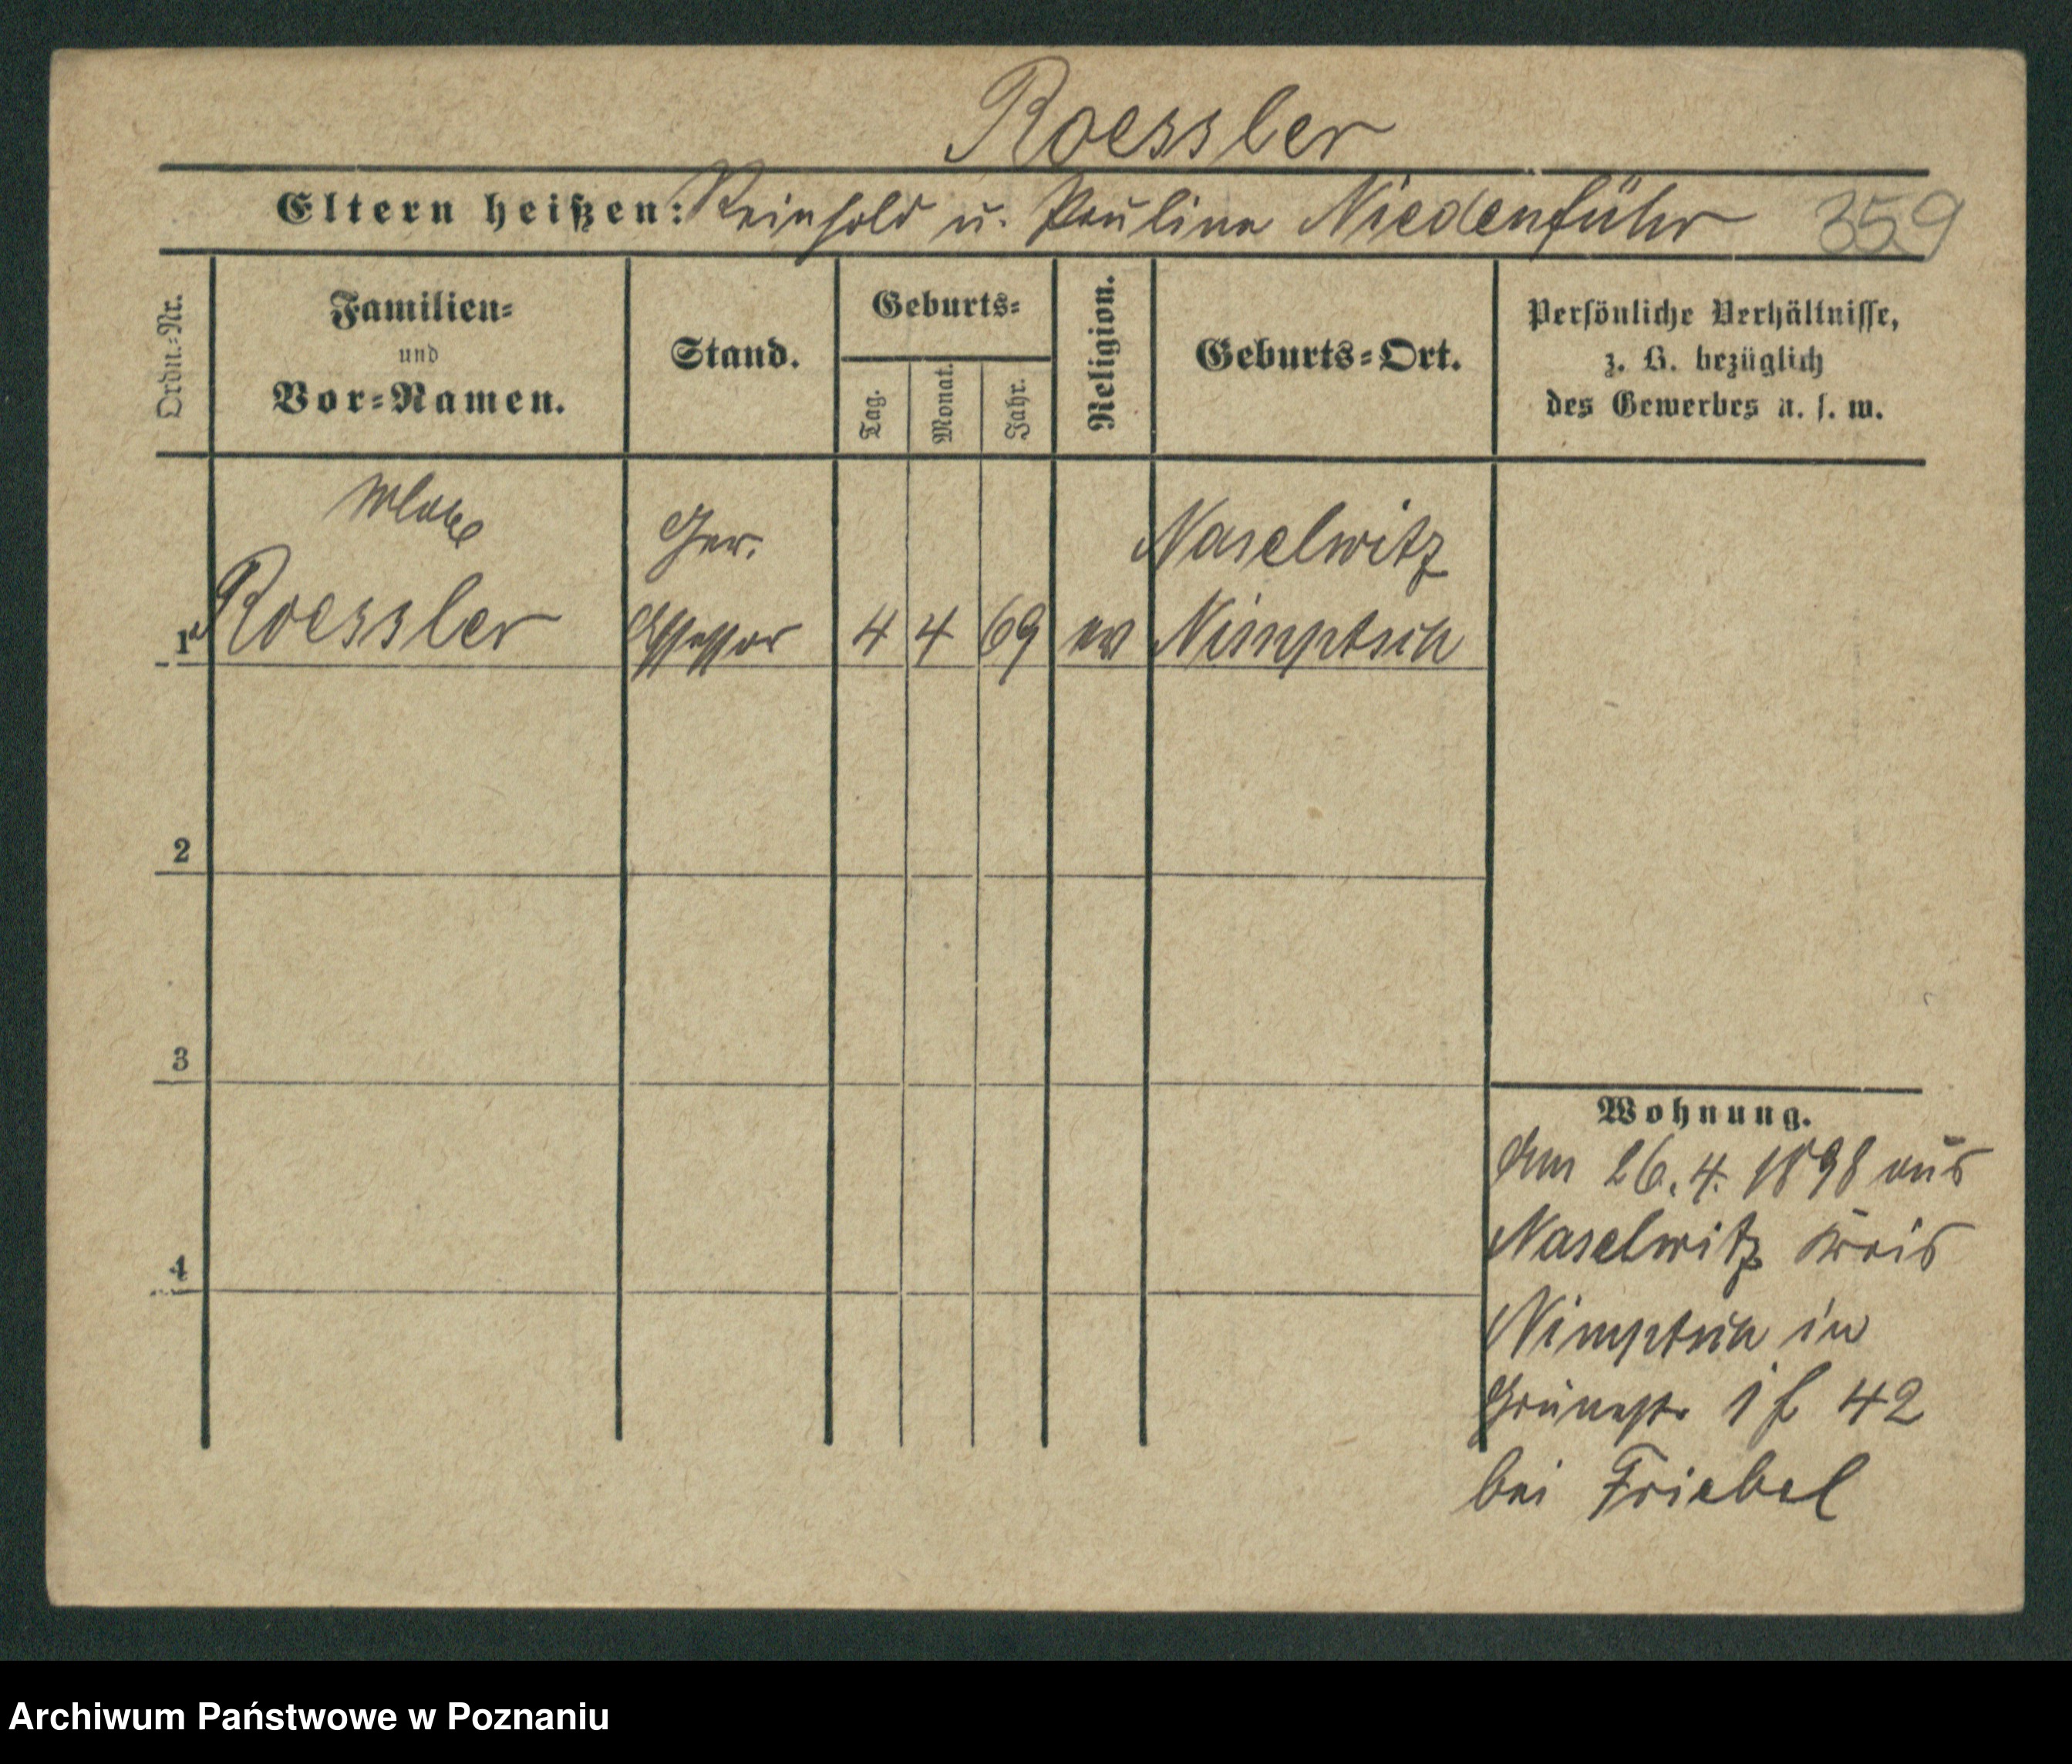 Roessler
Eltern heißen: Reinhold u. Pauline Niedenführ 359
Ordn.-Nr.
Familien-
und
Vor-Namen.
Stand.
Geburts-
Tag.
Monat.
Jahr.
Religion.
Geburts-Ort.
Persönliche Verhältnisse,
z. B. bezüglich
des Gewerbes u. s. w.
Ger. Naselwitz
1 Roessler Assessor 4 4 69 ev Nimptsch
2
3
4
Wohnung.
Am 26.4. 1898 aus
Naselwitz Kreis
Nimptsch in
Grünestr 1 f 42
bei Friebel
Archiwum Państwowe w Poznaniu